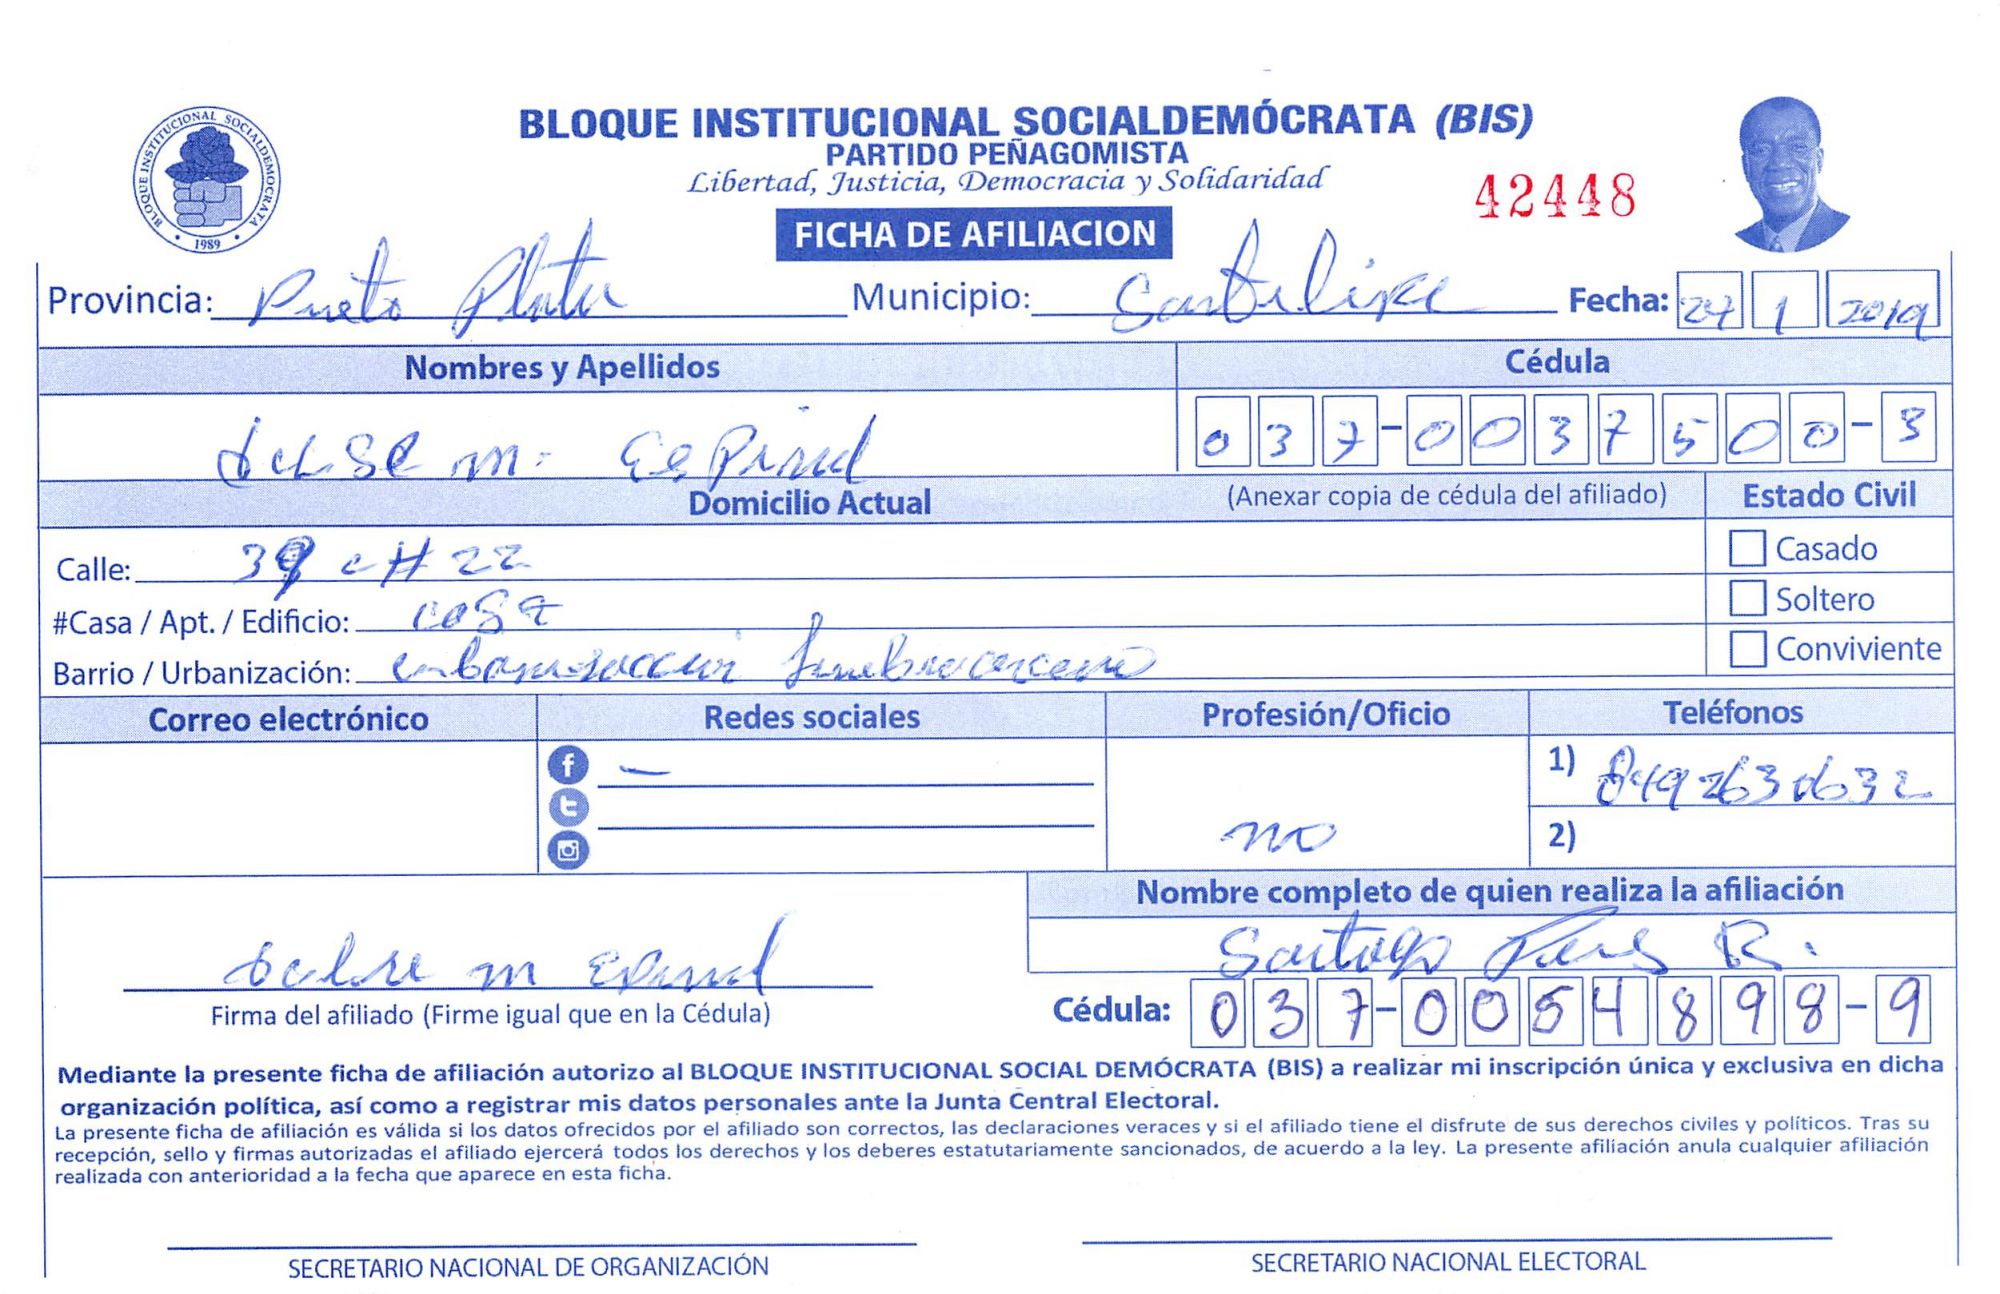 BLOQUE INSTITUCIONAL SOCIALDEMÓCRATA (BIS)
PARTIDO PEÑAGOMISTA
Libertad, Justicia, Democracia y Solidaridad
42448
BLOQUE INSTITUCIONAL SOCIALDEMOCRATA
1989
FICHA DE AFILIACION
Provincia: Pueto Plata Municipio: Fecha: 24 1 2019
Nombres y Apellidos Cédula
m. Espinal 037-0037500-3
Domicilio Actual (Anexar copia de cédula del afiliado) Estado Civil
Calle: 39 c # 22 Casado
#Casa / Apt. / Edificio: casa Soltero
Barrio / Urbanización: Conviviente
Correo electrónico Redes sociales Profesión/Oficio Teléfonos
1) 8492630632
no 2)
Nombre completo de quien realiza la afiliación
m Espinal R.
Firma del afiliado (Firme igual que en la Cédula) Cédula: 037-0054898-9
Mediante la presente ficha de afiliación autorizo al BLOQUE INSTITUCIONAL SOCIAL DEMÓCRATA (BIS) a realizar mi inscripción única y exclusiva en dicha
organización política, así como a registrar mis datos personales ante la Junta Central Electoral.
La presente ficha de afiliación es válida si los datos ofrecidos por el afiliado son correctos, las declaraciones veraces y si el afiliado tiene el disfrute de sus derechos civiles y políticos. Tras su
recepción, sello y firmas autorizadas el afiliado ejercerá todos los derechos y los deberes estatutariamente sancionados, de acuerdo a la ley. La presente afiliación anula cualquier afiliación
realizada con anterioridad a la fecha que aparece en esta ficha.
SECRETARIO NACIONAL DE ORGANIZACIÓN SECRETARIO NACIONAL ELECTORAL